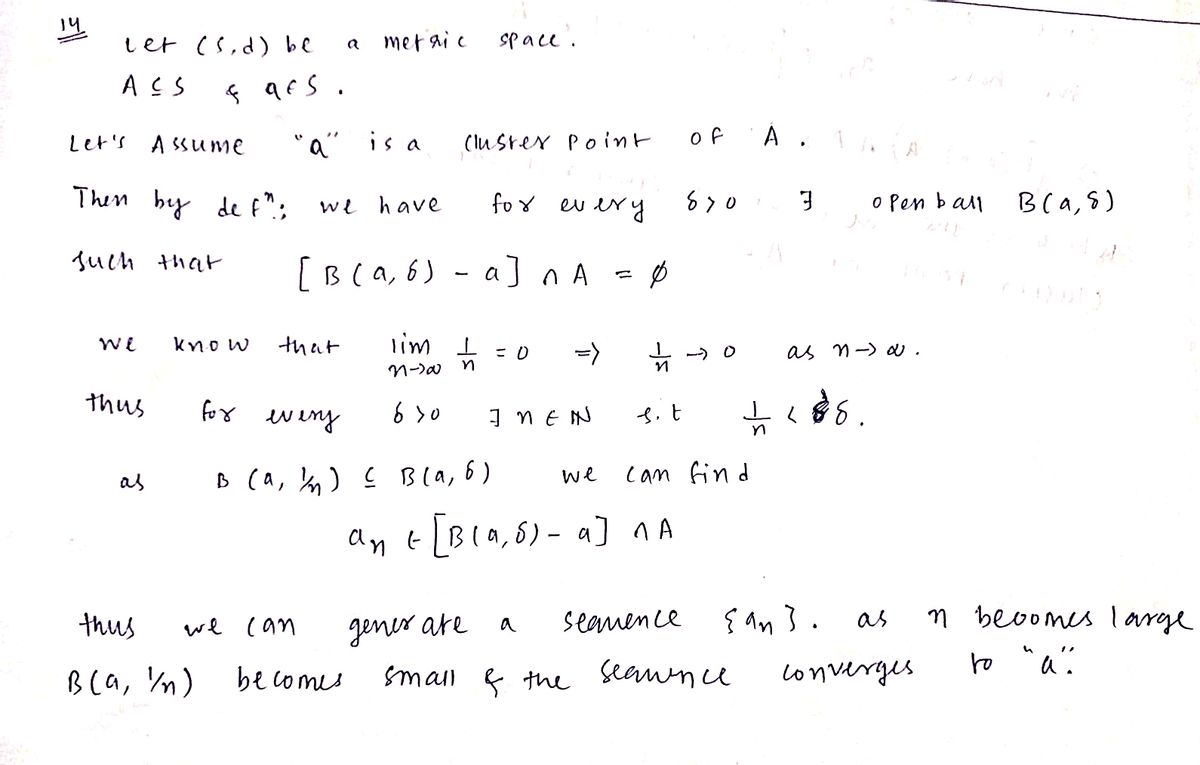 14
Let (S,d) be a metric space.
A ⊆ S & a ∈ S.
Let's Assume "a" is a cluster point of A.
Then by defⁿ; we have for every δ>0 ∃ open ball B(a,δ)
such that [B(a,δ) - a] ∩ A = ∅
we know that lim n→∞ 1/n = 0 => 1/n → 0 as n→∞.
thus for every δ>0 ∃ n ∈ ℕ s.t 1/n < δ.
as B(a, 1/n) ⊆ B(a,δ) we can find
aₙ ∈ [B(a,δ) - a] ∩ A
thus we can generate a sequence {aₙ}. as n becomes large
B(a, 1/n) becomes small & the sequence converges to "a".